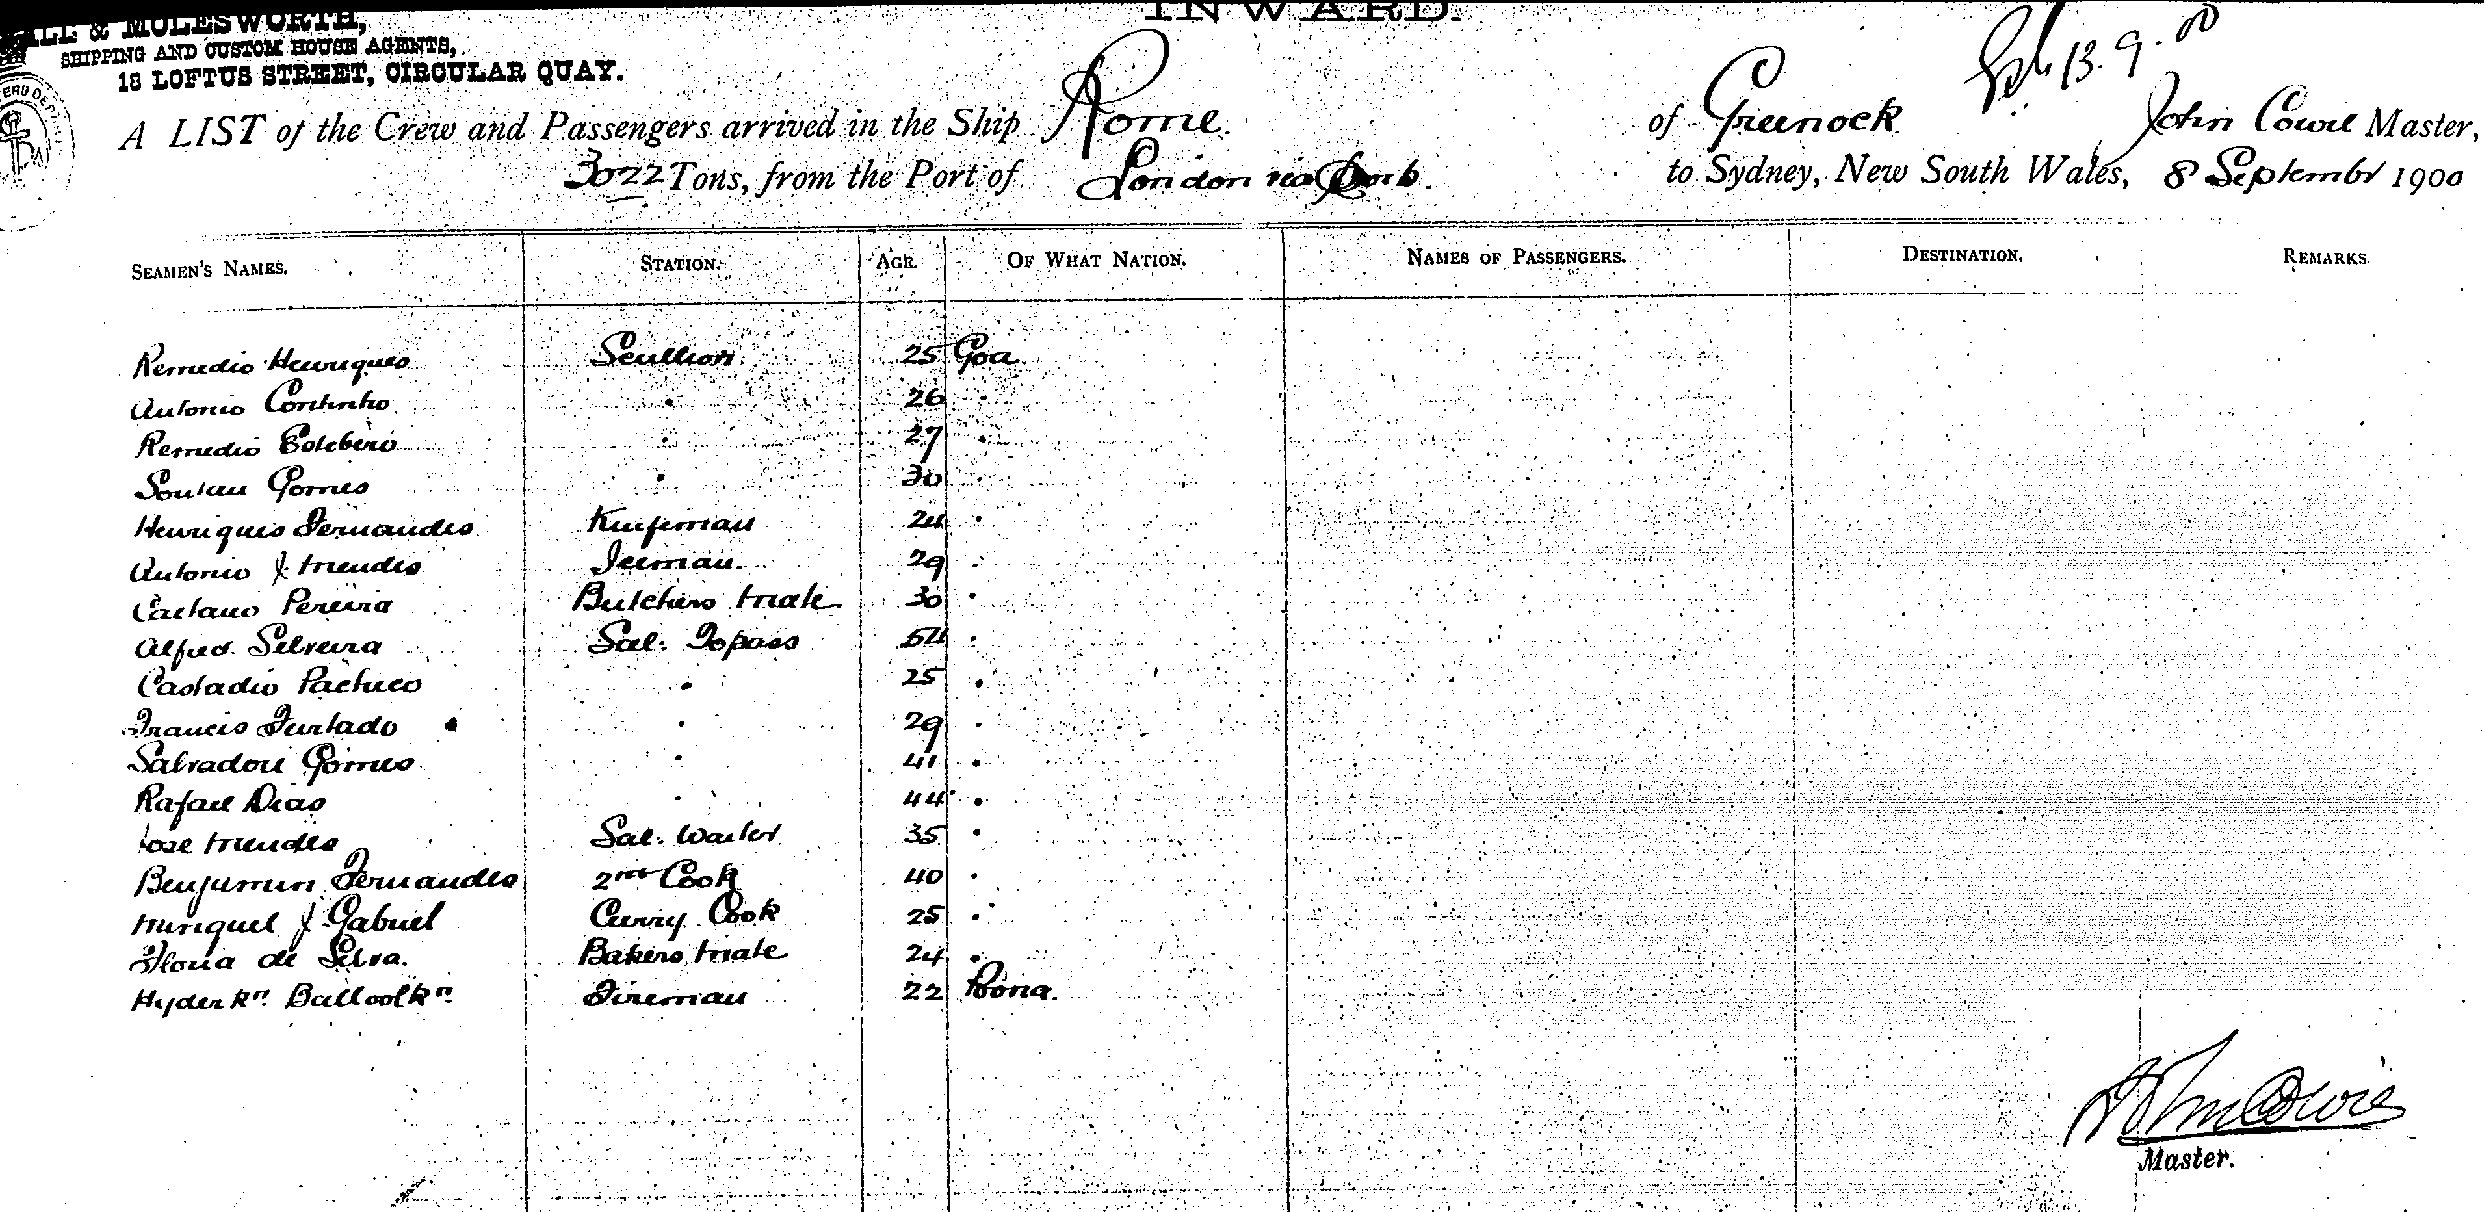 INWARD.
& MOLESWORTH,
SHIPPING AND CUSTOM HOUSE AGENTS,
18 LOFTUS STREET, CIRCULAR QUAY.
13.9.00
A LIST of the Crew and Passengers arrived in the Ship Rome of Greenock John Cowie Master,
3022 Tons, from the Port of London via to Sydney, New South Wales, 8 September 1900
SEAMEN'S NAMES. STATION. AGE. OF WHAT NATION. NAMES OF PASSENGERS. DESTINATION. REMARKS
Remedio Henriques Scullion 25 Goa
Antonio Continho " 26 "
Remedio " 27 "
Gomes " 30 "
Henriques Fernandes Knifeman 24 "
Antonio J. Mendes Iceman 29 "
Caetano Pereira Butchers Mate 30 "
Alfred Silveira Sal: Topass 54 "
Castadio Pacheco " 25 "
Francis Furtado " 29 "
Salvadore Gomes " 41 "
Rafael Dias " 44 "
Jose Mendes Sal: Waiter 35 "
Benjamin Fernandes 2nd Cook 40 "
Miniquel J Gabriel Curry Cook 25 "
de Silva Bakers Mate 24 "
Hyder Kn Ballook Kn Fireman 22 Poona.
John Cowie
Master.